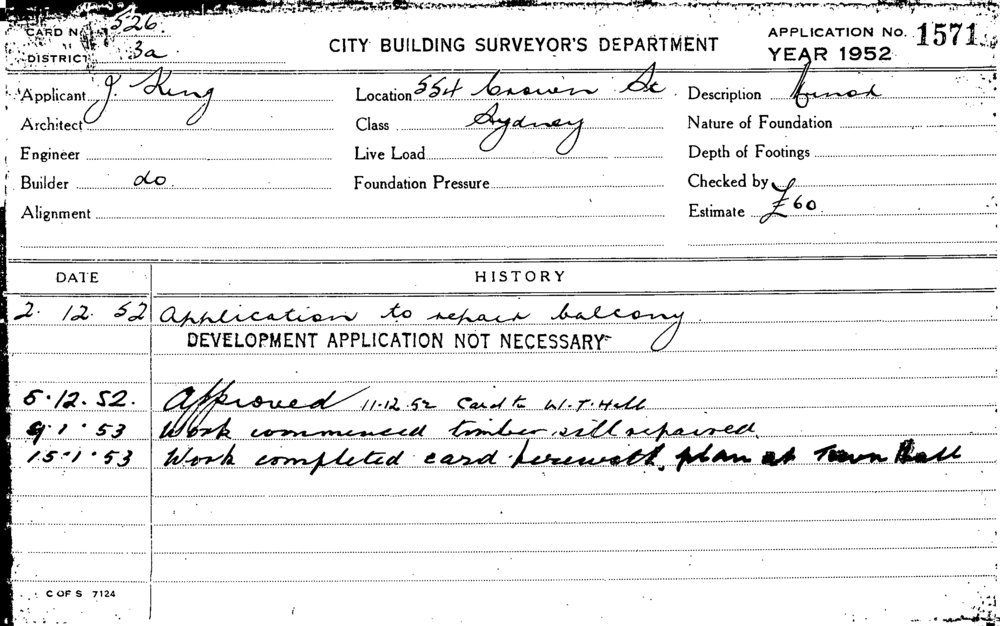 CARD No. 526.
DISTRICT 3a
CITY BUILDING SURVEYOR'S DEPARTMENT
APPLICATION No. 1571
YEAR 1952
Applicant J. King
Location 554 Crown St.
Description
Architect
Class Sydney
Nature of Foundation
Engineer
Live Load
Depth of Footings
Builder do.
Foundation Pressure
Checked by
Alignment
Estimate £60
DATE HISTORY
2. 12. 52 Application to repair balcony.
DEVELOPMENT APPLICATION NOT NECESSARY
5.12.52. Approved 11.12.52 Card to W.T. Hall
9.1.53 Work commenced timber sill repaired.
15.1.53 Work completed card herewith, plan at Town Hall
C OF S 7124